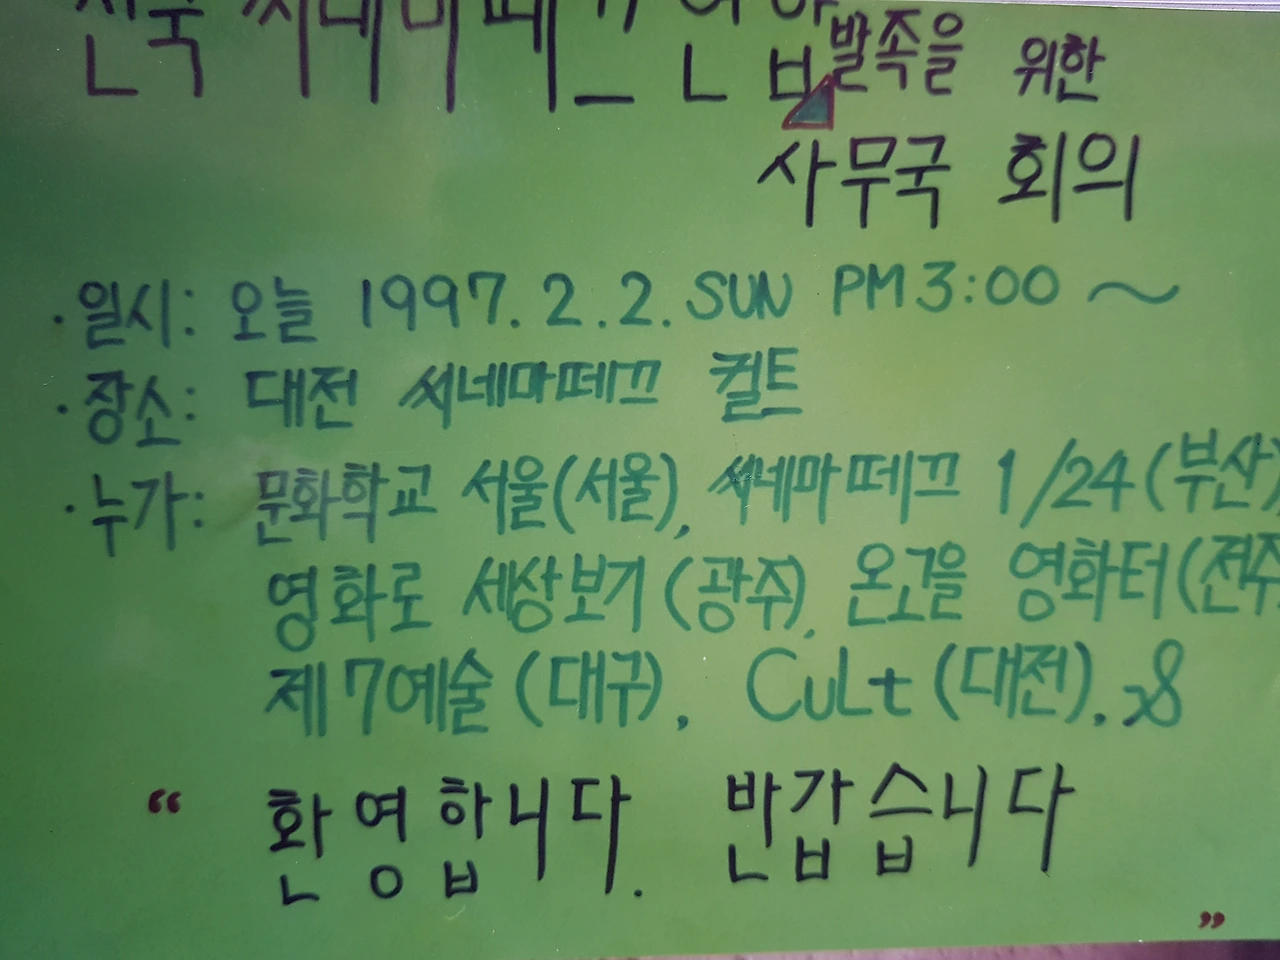 전국 씨네마떼끄 연합 발족을 위한
사무국 회의
· 일시: 오늘 1997. 2. 2. SUN PM 3:00 ~
· 장소: 대전 씨네마떼끄 컬트
· 누가: 문화학교 서울(서울), 씨네마떼끄 1/24(부산)
영화로 세상보기(광주), 온고을 영화터(전주
제7예술(대구), CuLt(대전).
“ 환영합니다. 반갑습니다 ”